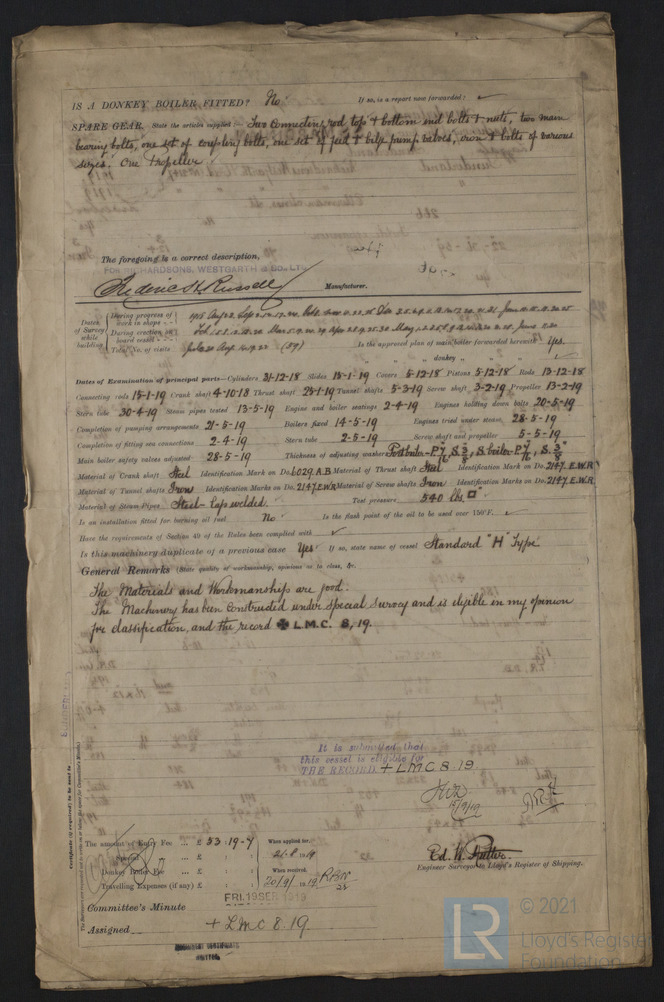 IS A DONKEY BOILER FITTED? No If so, is a report now forwarded?
SPARE GEAR. State the articles supplied:— Two connecting rod top & bottom end bolts & nuts, two main
bearing bolts, one set of coupling bolts, one set of feed & bilge pump valves, iron & bolts of various
sizes. One Propeller
The foregoing is a correct description,
FOR RICHARDSONS, WESTGARTH & Co., LTD.
Frederic H. Russell Manufacturer.
Dates of Survey while building
During progress of work in shops
During erection on board vessel
Total No. of visits (59) Is the approved plan of main boiler forwarded herewith Yes.
" " " donkey "
Dates of Examination of principal parts—Cylinders 31-12-18 Slides 15-1-19 Covers 5-12-18 Pistons 5-12-18 Rods 13-12-18
Connecting rods 15-1-19 Crank shaft 4-10-18 Thrust shaft 23-1-19 Tunnel shafts 5-3-19 Screw shaft 3-2-19 Propeller 13-2-19
Stern tube 30-4-19 Steam pipes tested 13-5-19 Engine and boiler seatings 2-4-19 Engines holding down bolts 20-5-19
Completion of pumping arrangements 21-5-19 Boilers fixed 14-5-19 Engines tried under steam 28-5-19
Completion of fitting sea connections 2-4-19 Stern tube 2-5-19 Screw shaft and propeller 5-5-19
Main boiler safety valves adjusted 28-5-19 Thickness of adjusting washers Port boiler-P 7/16, S 3/8; S. boiler-P 7/16, S. 3/8
Material of Crank shaft Steel Identification Mark on Do. 6029.A.B Material of Thrust shaft Steel Identification Mark on Do. 2147.E.W.R
Material of Tunnel shafts Iron Identification Marks on Do. 2147.E.W.R Material of Screw shafts Iron Identification Marks on Do. 2147.E.W.R.
Material of Steam Pipes Steel-Lap welded. Test pressure 540 lbs □"
Is an installation fitted for burning oil fuel No Is the flash point of the oil to be used over 150°F.
Have the requirements of Section 49 of the Rules been complied with
Is this machinery duplicate of a previous case Yes If so, state name of vessel Standard "H" Type
General Remarks (State quality of workmanship, opinions as to class, &c.
The Materials and Workmanships are good.
The Machinery has been constructed under special survey and is eligible in my opinion
for classification, and the record ✠ L.M.C. 8, 19.
It is submitted that
this vessel is eligible for
THE RECORD + LMC 8.19.
The amount of Entry Fee ... £ 53.19.4 When applied for,
Special ... £ 21.8.1919
Donkey Boiler Fee ... £ When received,
Travelling Expenses (if any) £ 20/9/1919
Engineer Surveyor to Lloyd's Register of Shipping.
Committee's Minute FRI. 19 SEP 1919
Assigned + LMC 8.19
© 2021
LR
Lloyd's Register
Foundation